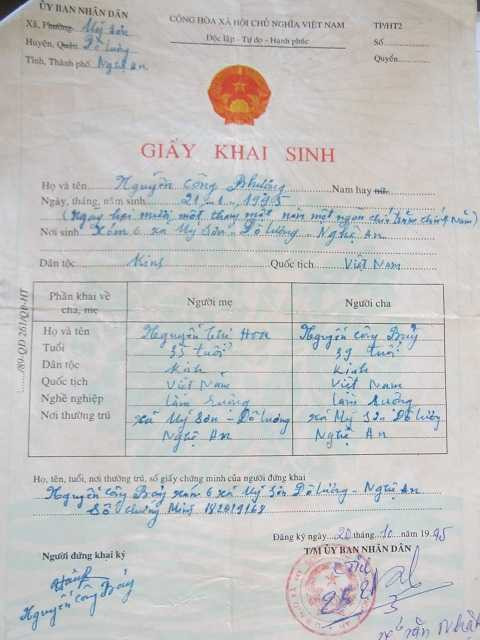 ỦY BAN NHÂN DÂN
CỘNG HÒA XÃ HỘI CHỦ NGHĨA VIỆT NAM
TP/HT2
Xã, Phường: Mỹ Sơn
Độc lập - Tự do - Hạnh phúc
Số
Huyện, Quận: Đô Lương
Quyển
Tỉnh, Thành phố Nghệ An
GIẤY KHAI SINH
Họ và tên Nguyễn Công Phượng Nam hay nữ
Ngày, tháng, năm sinh 21 - 1 - 1995
(Ngày hai mươi một tháng một năm một ngàn chín trăm chín năm)
Nơi sinh Xóm 6 xã Mỹ Sơn - Đô Lương Nghệ An
Dân tộc Kinh Quốc tịch Việt Nam
Phần khai về cha, mẹ Người mẹ Người cha
Họ và tên Nguyễn Thị Hoa Nguyễn Công Bảy
Tuổi 35 tuổi 39 tuổi
Dân tộc Kinh Kinh
Quốc tịch Việt Nam Việt Nam
Nghề nghiệp Làm ruộng Làm ruộng
Nơi thường trú xã Mỹ Sơn - Đô Lương xã Mỹ Sơn Đô Lương
Nghệ An Nghệ An
Họ, tên, tuổi, nơi thường trú, số giấy chứng minh của người đứng khai
Nguyễn Công Bảy xóm 6 xã Mỹ Sơn Đô Lương - Nghệ An
Số chứng minh 182019168
Đăng ký ngày 20 tháng 10 năm 1995
Người đứng khai ký
T/M ỦY BAN NHÂN DÂN
Nguyễn Công Bảy